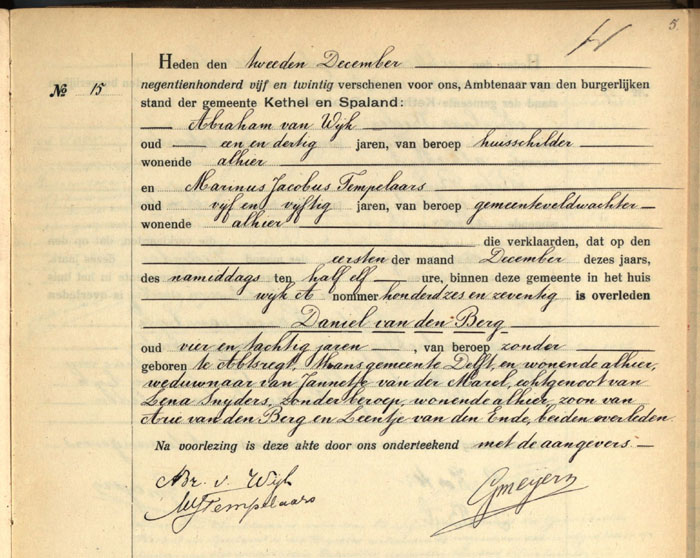 5.
Heden den tweeden December
negentienhonderd vijf en twintig verschenen voor ons, Ambtenaar van den burgerlijken
No 15
stand der gemeente Kethel en Spaland:
Abraham van Wijk
oud een en dertig jaren, van beroep huisschilder
wonende alhier
en Marinus Jacobus Tempelaars
oud vijf en vijftig jaren, van beroep gemeenteveldwachter
wonende alhier
die verklaarden, dat op den
eersten der maand December dezes jaars,
des namiddags ten half elf ure, binnen deze gemeente in het huis
wijk A nommer honderd zes en zeventig is overleden
Daniel van den Berg
oud vier en tachtig jaren, van beroep zonder
geboren te Abtsregt, thans gemeente Delft, en wonende alhier,
weduwnaar van Jannetje van der Marel, echtgenoot van
Lena Snyders, zonder beroep, wonende alhier, zoon van
Arie van den Berg en Leentje van den Ende, beiden overleden.
Na voorlezing is deze akte door ons onderteekend met de aangevers.
Abr. v. Wijk
MJTempelaars